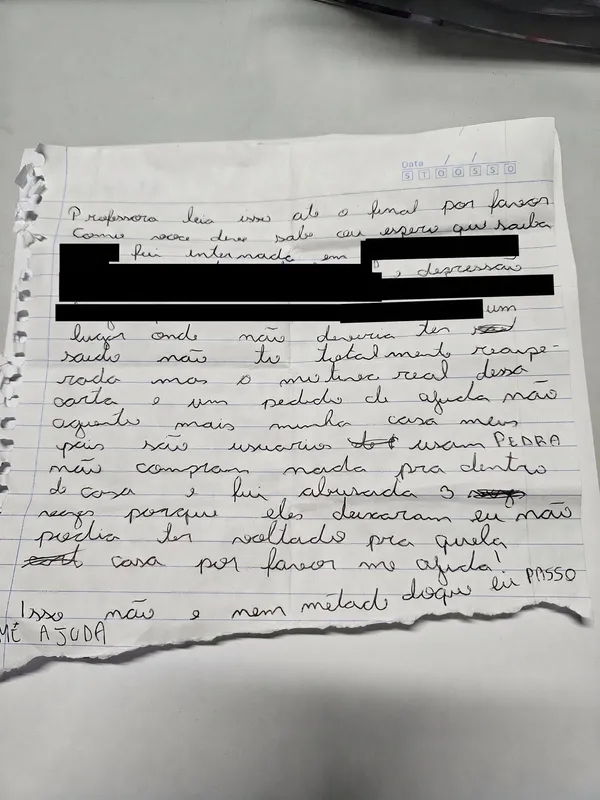 Data / /
S T Q Q S S D
Professora leia isso até o final por favor
Como voce deve sabe eu espero que saiba
fui internada em
e depressão
um
lugar onde não deveria ter
saido não to totalmente recupe-
rada mas o motivo real dessa
carta e um pedido de ajuda não
aguento mais minha casa meus
pais são usuarios usam PEDRA
não compram nada pra dentro
de casa e fui abusada 3
vezes porque eles deixaram eu não
podia ter voltado pra quela
casa por favor me ajuda!
Isso não e nem métad doque eu PASSO
ME AJUDA